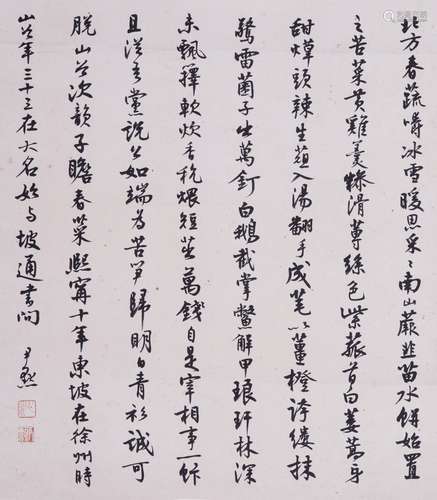 北方春蔬嚼冰雪暖思采〻南山蕨韭苗水餅姑置
之苦菜黃雞羹糝滑蓴絲色紫菰首白蔞蒿牙
甜蔊頭辣生葅入湯翻手成芼以薑橙誇縷抹
驚雷菌子出萬釘白鵝截掌鱉解甲琅玕林深
未飄籜軟炊香秔煨短茁萬錢自是宰相事一飰
且從吾黨說公如端為苦笋歸明日青衫誠可
脫山谷次韻子瞻春菜熙寧十年東坡在徐州時
山谷年三十三在大名始与坡通書問 尹默